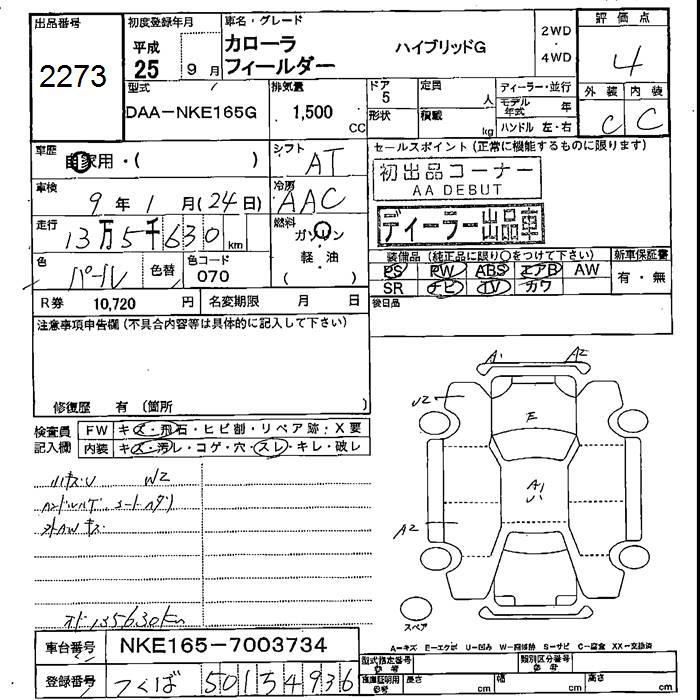 出品番号
2273
初度登録年月
平成
25 9月
車名・グレード
カローラ
フィールダー
ハイブリッドG
2WD
・
4WD
評価点
4
外装 内装
C C
型式
DAA-NKE165G
排気量
1,500
CC
ドア
5
形状
定員
人
積載
kg
ディーラー・並行
モデル年式 年
ハンドル 左・右
車歴
自家用・( )
シフト
AT
車検
9年1月(24日)
冷房
AAC
走行
13万5千630km
燃料
ガソリン
軽・油
( )
色
パール
色替
色コード
070
セールスポイント(正常に機能するものに限ります)
初出品コーナー
AA DEBUT
ディーラー出品車
装備品(純正品に限り○をつけて下さい)
PS PW ABS エアB AW
SR ナビ TV カワ
新車保証書
有・無
後日品
R券 10,720 円
名変期限 月 日
注意事項申告欄(不具合内容等は具体的に記入して下さい)
修復歴 有(箇所 )
検査員
記入欄
FW キズ・飛石・ヒビ割・リペア跡:X要
内装 キズ・汚レ・コゲ・穴・スレ・キレ・破レ
小キズ・U W2
ハンドルハゲ、シートヘタリ
オド135630km
A1 A2
U2
E
A1
U
A2
スペア
A-キズ E-エクボ U-凹み W-補修跡 S-サビ C-腐食 XX-交換済
車台番号 NKE165-7003734
登録番号 つくば 501 ラ 4936
型式指定番号
参考
類別区分番号
参考
車庫証明用
参考
長さ cm
幅 cm
高さ cm